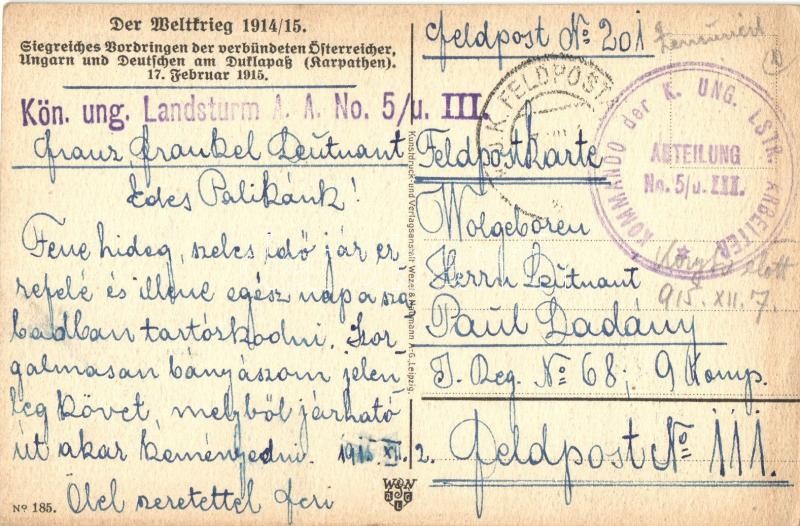 Der Weltkrieg 1914/15.
Siegreiches Vordringen der verbündeten Österreicher,
Ungarn und Deutschen am Duklapaß (Karpathen).
17. Februar 1915.
Kön. ung. Landsturm A. A. No. 5/u. III.
Franz Frankel Leutnant
Édes Palikánk!
Fene hideg, szeles idő jár er
refelé és illene egész nap a sza
badban tartózkodni. Szor
galmasan bányászom jelen
leg követ, melyből járható
út akar keményedni. 1915 XII. 2.
Ölel szeretettel Feri
No 185.
Kunstdruck- und Verlagsanstalt Wezel & Naumann A.-G. Leipzig.
W&N
Feldpost No 201
Zensuriert
K. FELDPOST
KOMMANDO der K. UNG. LSTR. ARBEITER
ABTEILUNG
No. 5/u. III.
Feldpostkarte
Wolgeboren
Herrn Leutnant
915. XII. 7.
Paul Ladány
I. Reg. No 68; 9 Komp.
Feldpost No 111.